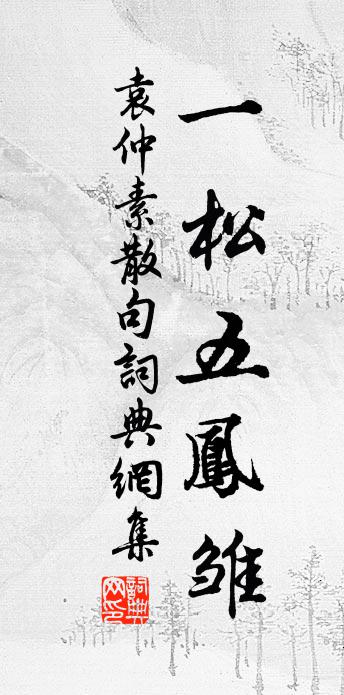 一松五鳳雛
袁仲素散句詞典網集